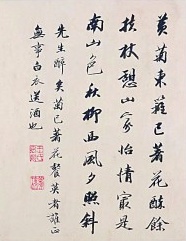 黄菊東籬已著花醉餘
扶杖憩山家怡情最是
南山色秋柳西風夕照斜
先生醉矣菊已著花餐英者誰正
無事白衣送酒也